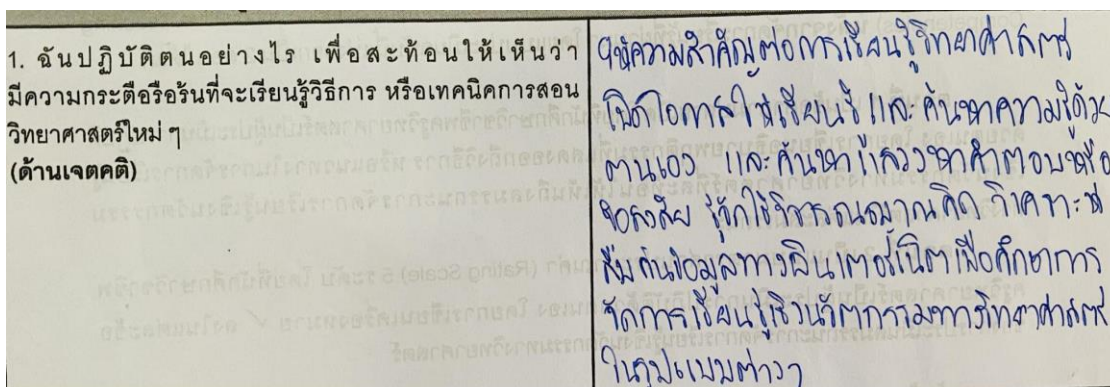 1. ฉันปฏิบัติตนอย่างไร เพื่อสะท้อนให้เห็นว่า
มีความกระตือรือร้นที่จะเรียนรู้วิธีการ หรือเทคนิคการสอน
วิทยาศาสตร์ใหม่ ๆ
(ด้านเจตคติ)
ให้ความสำคัญต่อการเรียนรู้วิทยาศาสตร์
เปิดโอกาสให้เรียนรู้และค้นหาความรู้ด้วย
ตนเอง และค้นหา แสวงหาคำตอบหรือ
ข้อสงสัย รู้จักใช้วิจารณญาณคิด วิเคราะห์
สืบค้นข้อมูลทางอินเตอร์เน็ตเพื่อศึกษาการ
จัดการเรียนรู้เชิงนวัตกรรมทางวิทยาศาสตร์
ในรูปแบบต่างๆ